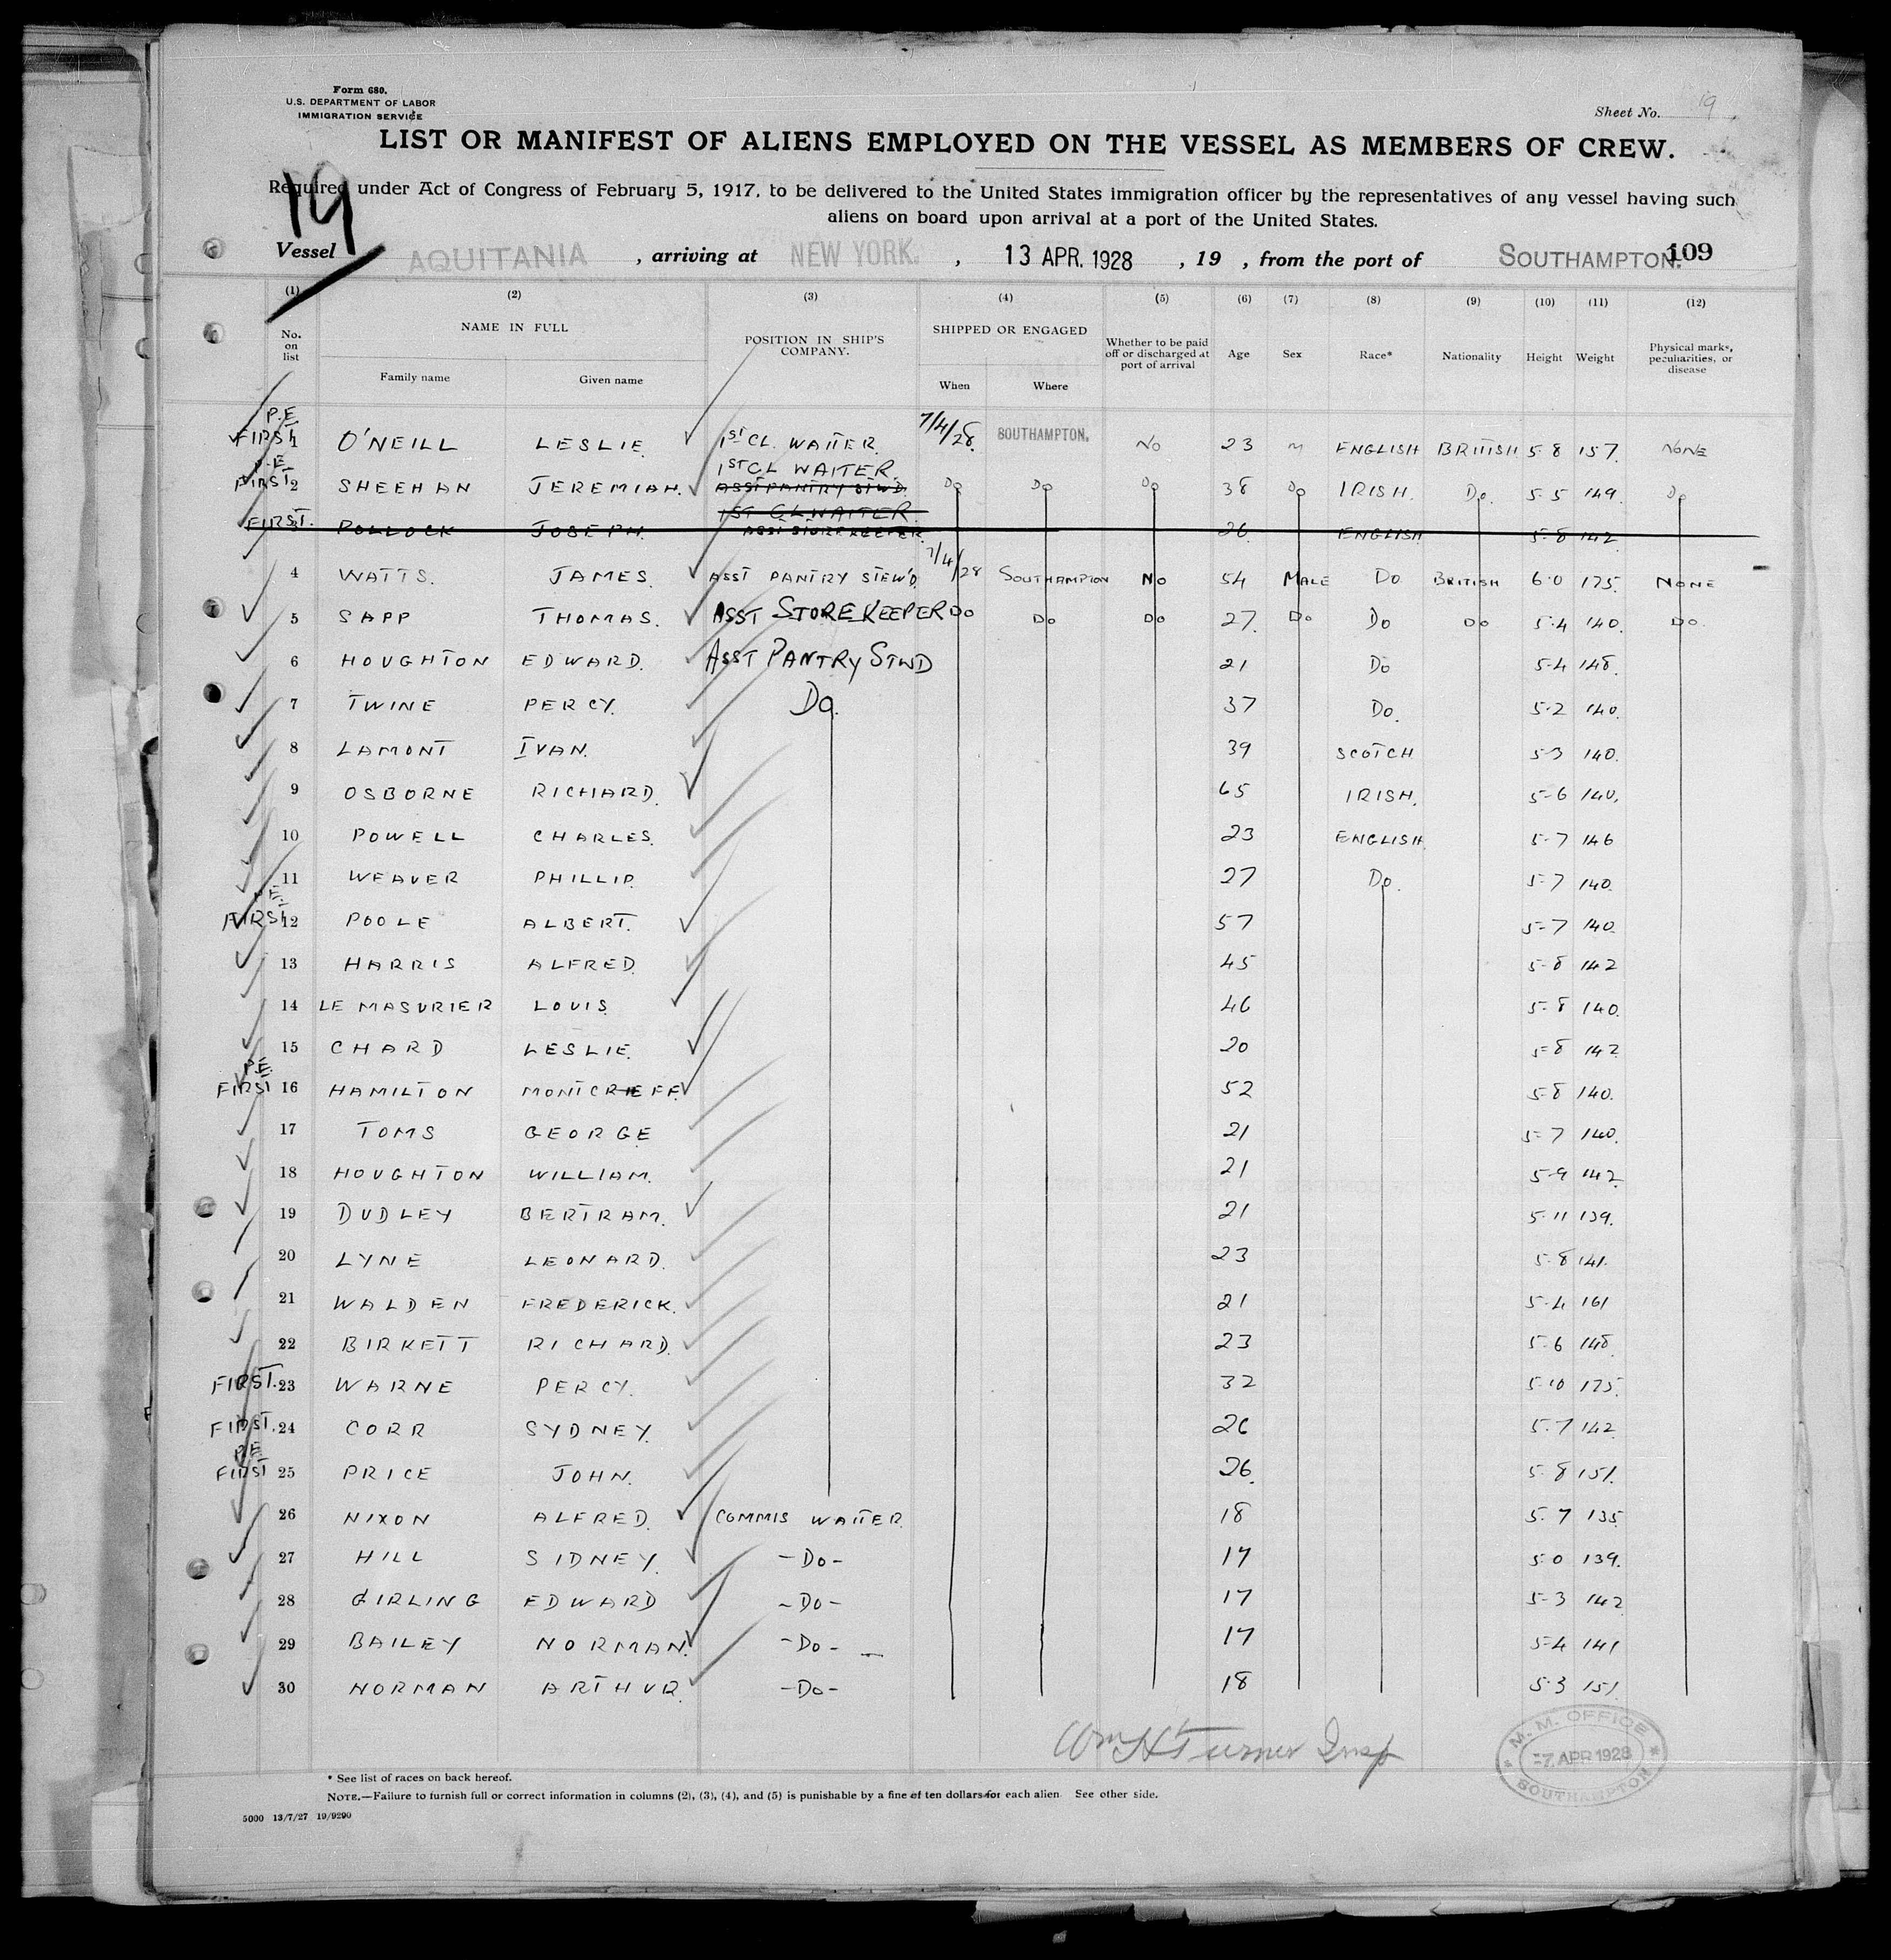 Form 680.
U.S. DEPARTMENT OF LABOR
IMMIGRATION SERVICE
Sheet No. 19
LIST OR MANIFEST OF ALIENS EMPLOYED ON THE VESSEL AS MEMBERS OF CREW.
Required under Act of Congress of February 5, 1917, to be delivered to the United States immigration officer by the representatives of any vessel having such
aliens on board upon arrival at a port of the United States.
19
Vessel AQUITANIA , arriving at NEW YORK. , 13 APR. 1928 , 19 , from the port of SOUTHAMPTON. 109
(1) (2) (3) (4) (5) (6) (7) (8) (9) (10) (11) (12)
No. on list NAME IN FULL Family name Given name POSITION IN SHIP'S COMPANY. SHIPPED OR ENGAGED When Where Whether to be paid off or discharged at port of arrival Age Sex Race* Nationality Height Weight Physical marks, peculiarities, or disease
P.E
FIRST 1 O'NEILL LESLIE. 1ST CL. WAITER. 7/4/28. SOUTHAMPTON. NO 23 M ENGLISH BRITISH 5 8 157. NONE
P.E
FIRST 2 SHEEHAN JEREMIAH. 1ST CL WAITER ASST PANTRY STW'D. DO DO DO 38 DO IRISH. DO. 5 5 149. DO
FIRST. 3 POLLOCK JOSEPH. 1ST CL WAITER. ASST STOREKEEPER. 26 ENGLISH 5-8 142
4 WATTS. JAMES. ASST PANTRY STEW'D. 7/4/28 SOUTHAMPTON NO 54 MALE DO BRITISH 6.0 175. NONE
5 SAPP THOMAS. ASST STOREKEEPER DO DO DO 27. DO DO DO 5.4 140. DO.
6 HOUGHTON EDWARD. ASST PANTRY STWD 21 DO 5-4 148.
7 TWINE PERCY. DO. 37 DO. 5.2 140.
8 LAMONT IVAN. 39 SCOTCH 5-3 140.
9 OSBORNE RICHARD. 65 IRISH. 5-6 140.
10 POWELL CHARLES. 23 ENGLISH. 5-7 146
11 WEAVER PHILLIP. 27 DO. 5-7 140.
P.E.
FIRST 12 POOLE ALBERT. 57 5-7 140.
13 HARRIS ALFRED. 45 5-8 142
14 LE MASURIER LOUIS. 46 5-8 140.
15 CHARD LESLIE. 20 5-8 142
P.E.
FIRST 16 HAMILTON MONTCRIEFF. 52 5-8 140.
17 TOMS GEORGE 21 5-7 140.
18 HOUGHTON WILLIAM. 21 5-9 142.
19 DUDLEY BERTRAM. 21 5.11 139.
20 LYNE LEONARD. 23 5-8 141.
21 WALDEN FREDERICK. 21 5-4 161
22 BIRKETT RICHARD. 23 5-6 148.
FIRST. 23 WARNE PERCY. 32 5-10 175.
FIRST. 24 CORR SYDNEY. 26 5.7 142
P.E
FIRST 25 PRICE JOHN. 26. 5.8 151.
26 NIXON ALFRED. COMMIS WAITER. 18 5.7 135
27 HILL SIDNEY. -DO- 17 5.0 139.
28 GIRLING EDWARD -DO- 17 5-3 142
29 BAILEY NORMAN. -DO- 17 5-4 141
30 NORMAN ARTHUR. -DO- 18 5.3 151.
Wm H Turner Insp
M. M. OFFICE
-7 APR 1928
SOUTHAMPTON
* See list of races on back hereof.
NOTE.—Failure to furnish full or correct information in columns (2), (3), (4), and (5) is punishable by a fine of ten dollars for each alien. See other side.
5000 13/7/27 19/9290